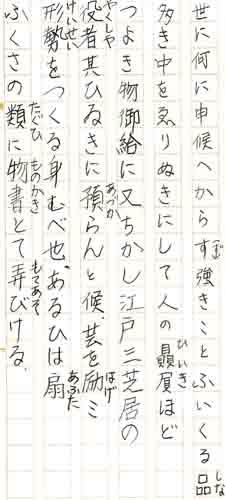 世に何に申候へからず強きことふいくる品
多き中をゑりぬきにして人の贔屓ほど
つよき物御給に又ちかし江戸三芝居の
役者其ひゐきに預らんと候、芸を励ミ
形勢をつくる身むべ也、あるひは扇
ふくさの類に物書とて弄びける。